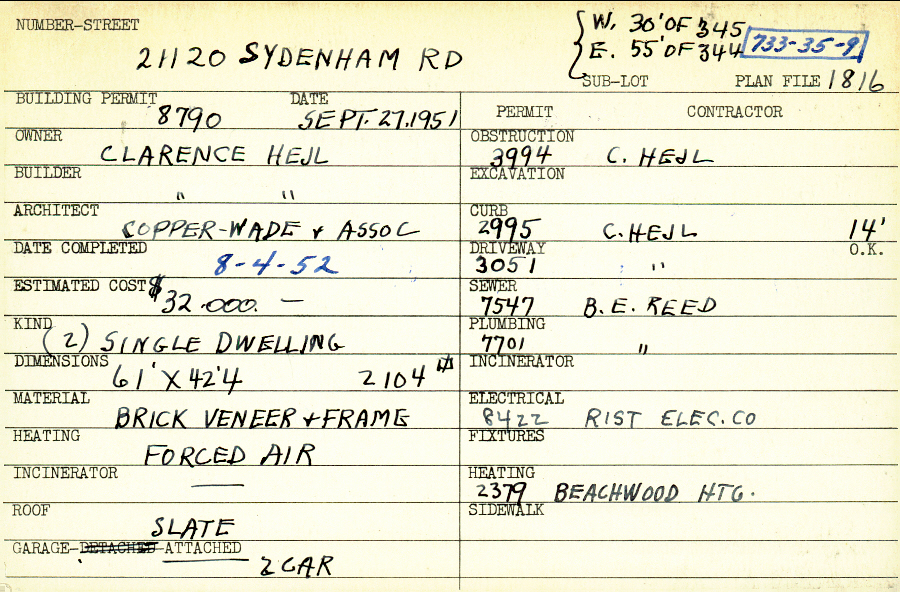 NUMBER-STREET
21120 SYDENHAM RD
W. 30' OF 345
E. 55' OF 344
733-35-9
SUB-LOT PLAN FILE 1816
BUILDING PERMIT DATE
8790 SEPT. 27. 1951
OWNER
CLARENCE HEJL
BUILDER
" "
ARCHITECT
COPPER-WADE & ASSOC
DATE COMPLETED
8-4-52
ESTIMATED COST
$32.000. —
KIND
(2) SINGLE DWELLING
DIMENSIONS
61' X 42'4 2104 #
MATERIAL
BRICK VENEER & FRAME
HEATING
FORCED AIR
INCINERATOR
—
ROOF
SLATE
GARAGE-DETACHED-ATTACHED
2 CAR
PERMIT CONTRACTOR
OBSTRUCTION
3994 C. HEJL
EXCAVATION
CURB
2995 C. HEJL 14'
DRIVEWAY O.K.
3051 "
SEWER
7547 B. E. REED
PLUMBING
7701 "
INCINERATOR
ELECTRICAL
8422 RIST ELEC. CO
FIXTURES
HEATING
2379 BEACHWOOD HTG.
SIDEWALK